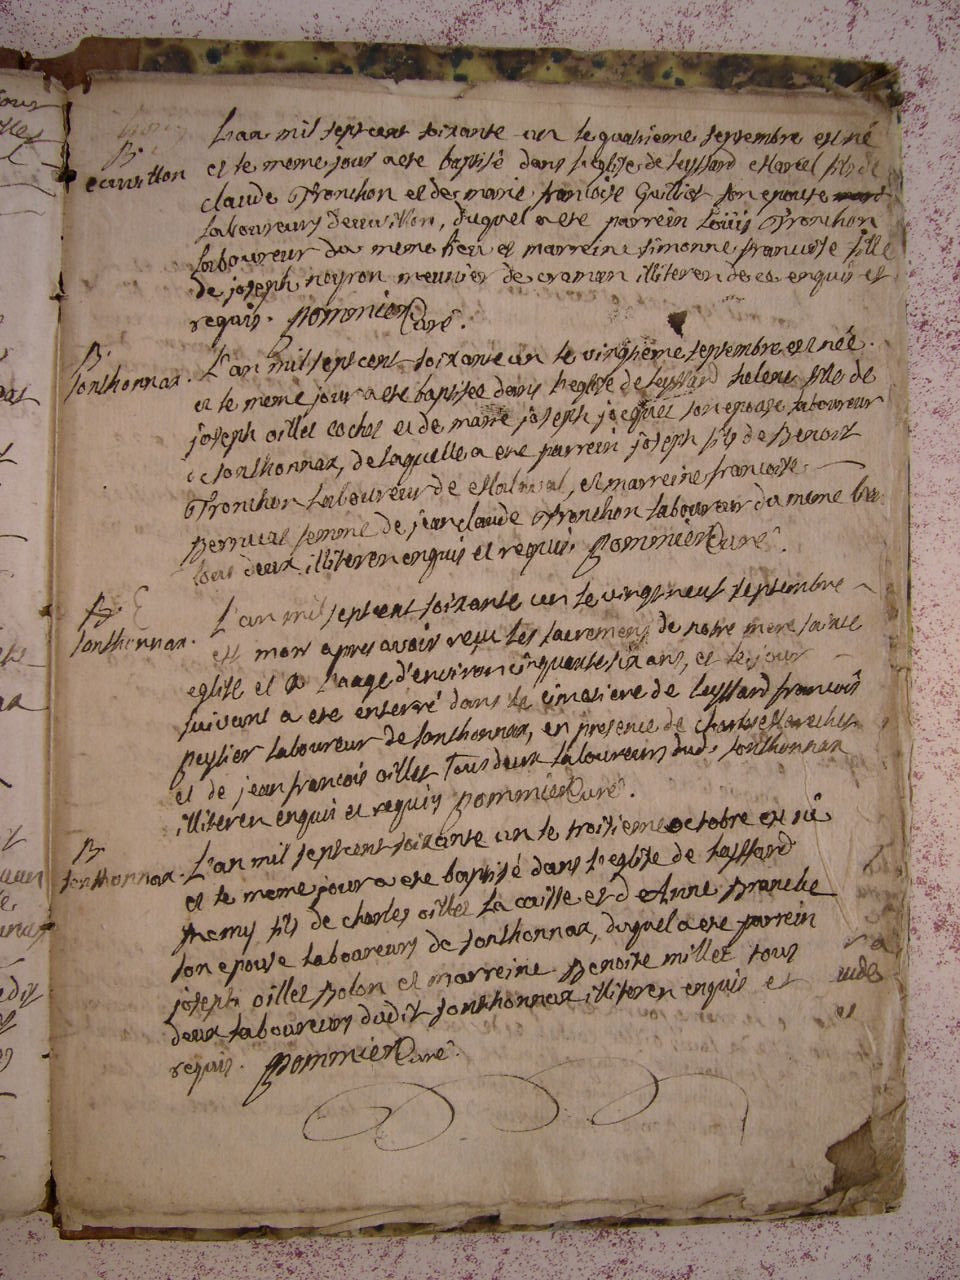 B.
ecuvillon
L'an mil sept cent soixante un le quatrieme septembre est né
et le meme jour a eté baptisé dans l'eglise de leyssard Marcel fils de
claude Tronchon et de marie francoise Guilliot son epouse
laboureurs decuvillon, duquel a eté parrein Louis Tronchon
laboureur du meme lieu et marreine simonne francoise fille
de joseph noyron meunier de craman illiteren de ce enquis et
requis. Pommier Curé.
B.
sonthonnax.
L'an mil sept cent soixante un le vingtieme septembre est née
et le meme jour a eté baptisée dans l'eglise de leyssard helene fille de
joseph oillet cochet et de marie joseph jacquet son epouse laboureur
a sonthonnax, de laquelle a eté parrein joseph fils de Benoit
Tronchon laboureur de Malaval, et marreine francoise
Perrucat femme de jean claude Tronchon laboureur du meme lieu
tous deux illiteren enquis et requis. Pommier Curé.
sonthonnax.
L'an mil sept cent soixante un le vingt neuf septembre
est mort apres avoir reçu les sacremens de notre mere sainte
eglise et a l'aage d'environ cinquante six ans, et le jour
suivant a eté enterré dans le cimetiere de leyssard francois
peysier laboureur de sonthonnax, en presence de charles
et de jean francois oillet Tous deux laboureurs dud. sonthonnax
illiteren enquis et requis Pommier Curé.
B
sonthonnax.
L'an mil sept cent soixante un le troisieme octobre est né
et le meme jour a eté baptisé dans l'eglise de leyssard
Remy fils de charles oillet La caille et d'Anne Branche
son epouse laboureurs de sonthonnax, duquel a eté parrein
joseph oillet Bolon et marreine Benoite millet tous
deux laboureurs dudit sonthonnax illiteren enquis et
requis. Pommier Curé.